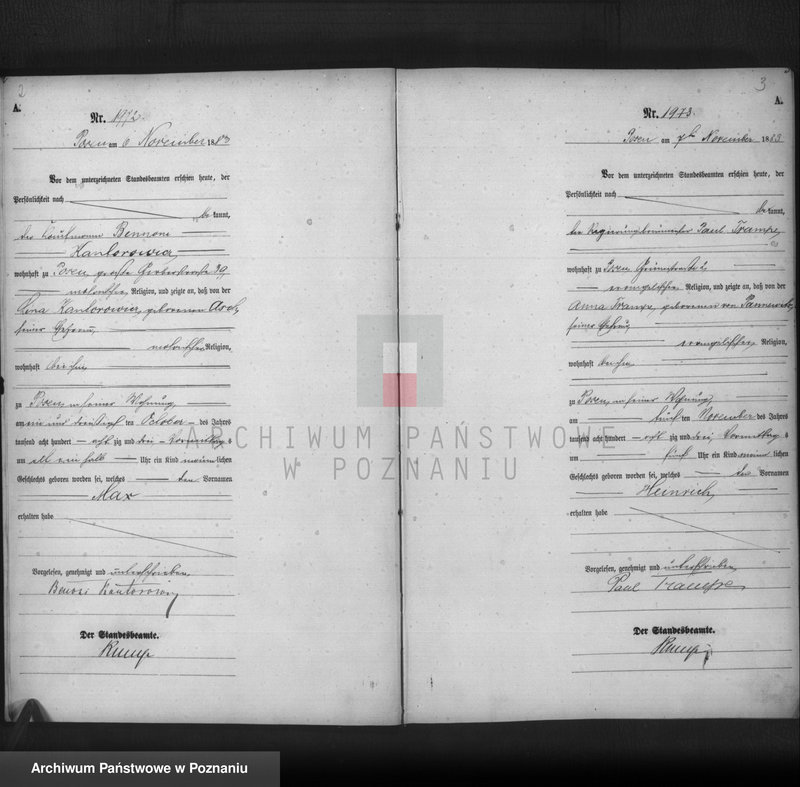 2
A.
Nr. 1972.
Posen am 6 November 1883
Vor dem unterzeichneten Standesbeamten erschien heute, der
Persönlichkeit nach
be kannt,
der Kaufmann
Kantorowicz
wohnhaft zu Posen, große Gerberstraße 39,
Religion, und zeigte an, daß von der
Kantorowicz, geborenen
seiner Ehefrau,
Religion,
wohnhaft bei ihm
zu Posen, in seiner Wohnung,
am ein und dreißigsten October des Jahres
tausend acht hundert acht zig und drei Vormittags
um elf ein halb Uhr ein Kind männlichen
Geschlechts geboren worden sei, welches den Vornamen
Max
erhalten habe
Vorgelesen, genehmigt und unterschrieben
Kantorowicz
Der Standesbeamte.
Kump
3
A.
Nr. 1973.
Posen am 7ten November 1883
Vor dem unterzeichneten Standesbeamten erschien heute, der
Persönlichkeit nach
be kannt,
der Regierungsbaumeister Paul Trampe,
wohnhaft zu Posen
evangelischer Religion, und zeigte an, daß von der
Anna Trampe, geborenen von
seiner Ehefrau,
evangelischer Religion,
wohnhaft bei ihm
zu Posen, in seiner Wohnung,
am fünften November des Jahres
tausend acht hundert acht zig und drei, Vormittags
um fünf Uhr ein Kind männlichen
Geschlechts geboren worden sei, welches den Vornamen
Heinrich,
erhalten habe
Vorgelesen, genehmigt und unterschrieben
Paul Trampe
Der Standesbeamte.
Kump
ARCHIWUM PAŃSTWOWE
W POZNANIU
Archiwum Państwowe w Poznaniu